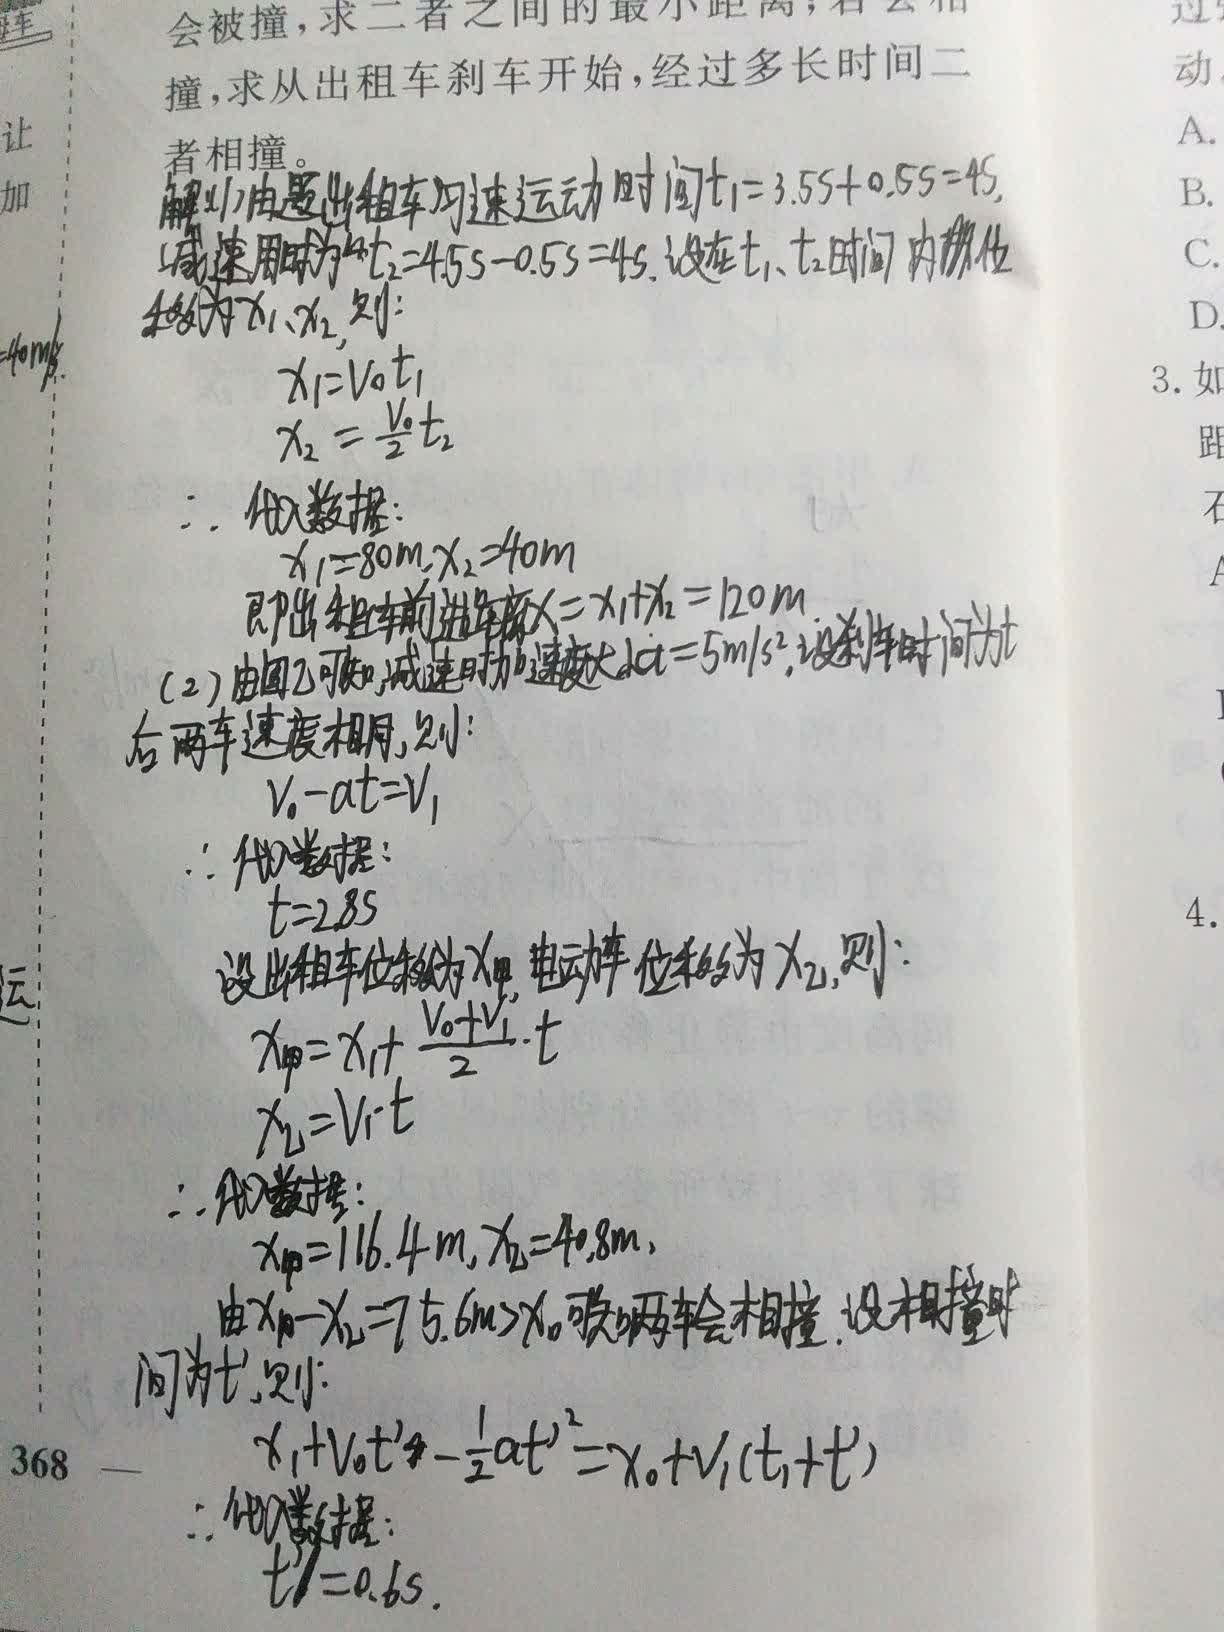 会被撞,求二者之间的最小距离;若会相
撞,求从出租车刹车开始,经过多长时间二
者相撞。
解:(1)由题,出租车匀速运动时间t₁=3.5s+0.5s=4s,
减速用时为t₂=4.5s-0.5s=4s.设在t₁、t₂时间内位
移为x₁、x₂,则:
x₁=v₀t₁
x₂=v₀/2 t₂
∴代入数据:
x₁=80m,x₂=40m
即出租车前进距离x=x₁+x₂=120m
(2)由图乙可知,减速时加速度大小a=5m/s²,设刹车时间为t
后两车速度相同,则:
v₀-at=v₁
∴代入数据:
t=2.8s
设出租车位移为x甲,电动车位移为x乙,则:
x甲=x₁+(v₀+v₁)/2·t
x乙=v₁·t
∴代入数据:
x甲=116.4m,x乙=40.8m,
由x甲-x乙=75.6m>x₀可知两车会相撞.设相撞时
间为t′,则:
x₁+v₀t′-1/2at′²=x₀+v₁(t₁+t′)
∴代入数据:
t′=0.6s.
368
让
加
=40m/s.
运
动
A.
B.
C.
D.
3. 如
距
石
A
4.